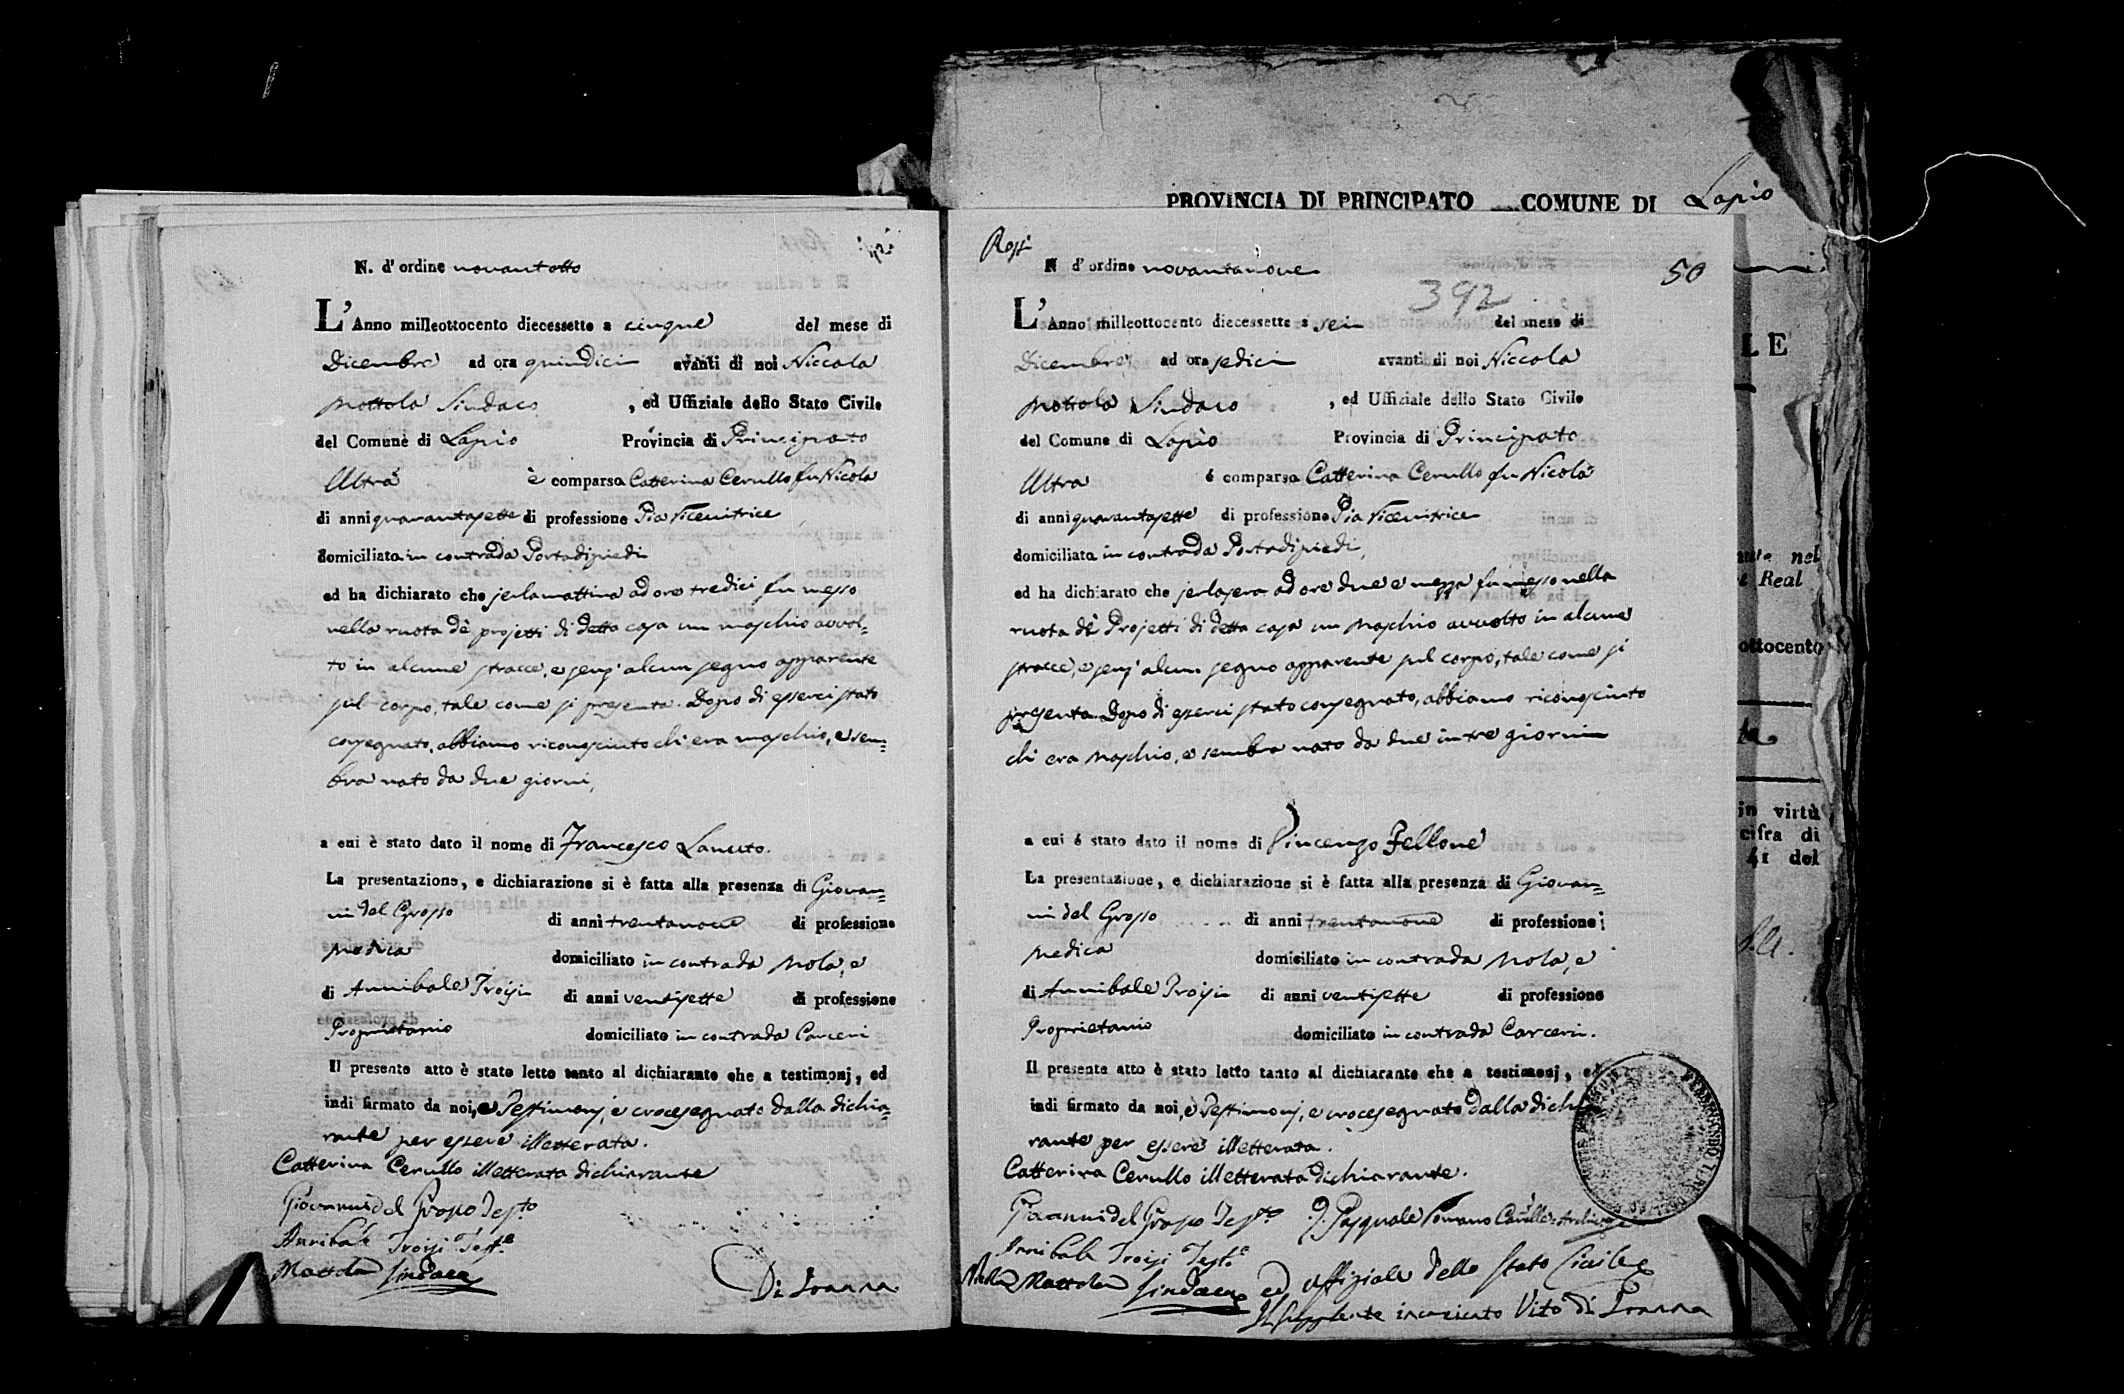 N. d'ordine novantotto
L'Anno milleottocento diecessette a cinque del mese di
Dicembre ad ora quindici avanti di noi Niccola
Mottola Sindaco , ed Uffiziale dello Stato Civile
del Comune di Lapio Provincia di Principato
Ultra è comparsa Catterina Cerullo fu Nicola
di anni quarantasette di professione Pia Ricevitrice
domiciliata in contrada Portadipiedi
ed ha dichiarato che jerlamattina ad ore tredici fu messo
nella ruota dè projetti di detta casa un maschio avvol=
to in alcune stracce, e senz' alcun segno apparente
sul corpo, tale come si presenta. Dopo di esserci stato
consegnato, abbiamo riconosciuto chi era maschio, e sem=
bra nato da due giorni,
a cui è stato dato il nome di Francesco Lanuto.
La presentazione, e dichiarazione si è fatta alla presenza di Giovan=
ni del Grosso di anni trentanove di professione
Medica domiciliato in contrada Mola, e
di Annibale Troisi di anni ventisette di professione
Proprietario domiciliato in contrada Carceri
Il presente atto è stato letto tanto al dichiarante che a testimonj, ed
indi firmato da noi, e Testimonj, e crocesegnato dalla dichia=
rante per essere illetterata.
Catterina Cerullo illetterata dichiarante
Giovanni del Grosso Testo
Annibale Troisi Teste
Mottola Sindaco
Di Joanna
PROVINCIA DI PRINCIPATO COMUNE DI Lapio
N d'ordine novantanove
50
392
L'Anno milleottocento diecessette a sei del mese di
Dicembre ad ora sedici avanti di noi Niccola
Mottola Sindaco , ed Uffiziale dello Stato Civile
del Comune di Lapio Provincia di Principato
Ultra é comparsa Catterina Cerullo fu Nicola
di anni quarantasette di professione Pia Ricevitrice
domiciliata in contrada Portadipiedi,
ed ha dichiarato che jerlasera ad ore due e mezza fu messo nella
ruota dè Projetti di detta casa un Maschio avvolto in alcune
stracce, e senz' alcun segno apparente sul corpo, tale come si
presenta. Dopo di esserci stato consegnato, abbiamo riconosciuto
chi era Maschio, e sembra nato da due in tre giorni
a cui é stato dato il nome di Vincenzo Fellone
La presentazione, e dichiarazione si è fatta alla presenza di Giovan=
ni del Grosso di anni trentanove di professione
Medica domiciliato in contrada Mola, e
di Annibale Troisi di anni ventisette di professione
Proprietario domiciliato in contrada Carceri.
Il presente atto è stato letto tanto al dichiarante che a testimonj, ed
indi firmato da noi, e Testimonj, e crocesegnato dalla dichia
rante per essere illetterata.
Catterina Cerullo illetterata dichiarante.
Giovanni del Grosso Testo D. Pasquale Romano
Annibale Troisi Teste
Mottola Sindaco ed Uffiziale dello Stato Civile
Il Supplente incaricato Vito di Joanna
LE
nel
Real
ottocento
in virtù
cifra di
41 del